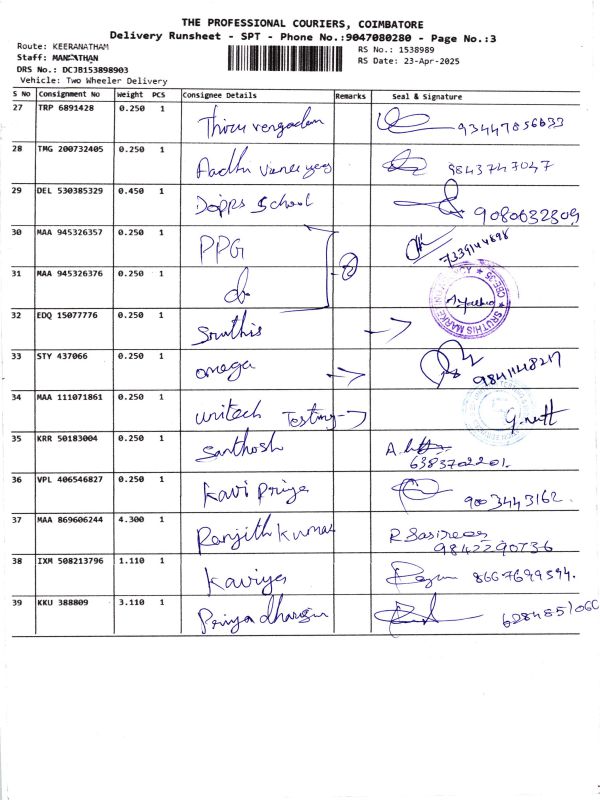 THE PROFESSIONAL COURIERS, COIMBATORE
Delivery Runsheet - SPT - Phone No.:9047080280 - Page No.:3
Route: KEERANATHAM
RS No.: 1538989
Staff: MANIATHAN
RS Date: 23-Apr-2025
DRS No.: DCJB153898903
Vehicle: Two Wheeler Delivery
S No Consignment No Weight PCS Consignee Details Remarks Seal & Signature
27 TRP 6891428 0.250 1 Thiru vengadam 93447856633
28 TMG 200732405 0.250 1 9843747047
29 DEL 530385329 0.450 1 Dopps School 9080632309
30 MAA 945326357 0.250 1 PPG 2 7339144898
31 MAA 945326376 0.250 1 do
32 EDQ 15077776 0.250 1 Sruthis
33 STY 437066 0.250 1 omega 9841148217
34 MAA 111071861 0.250 1 unitech Testing
35 KRR 50183004 0.250 1 Santhosh 6383702201.
36 VPL 406546827 0.250 1 Kavi Priya 9003443162.
37 MAA 869606244 4.300 1 Ranjith Kumar 9842290736
38 IXM 508213796 1.110 1 Kaviya 8667699394.
39 KKU 388809 3.110 1 Priya dharsan 6284851060